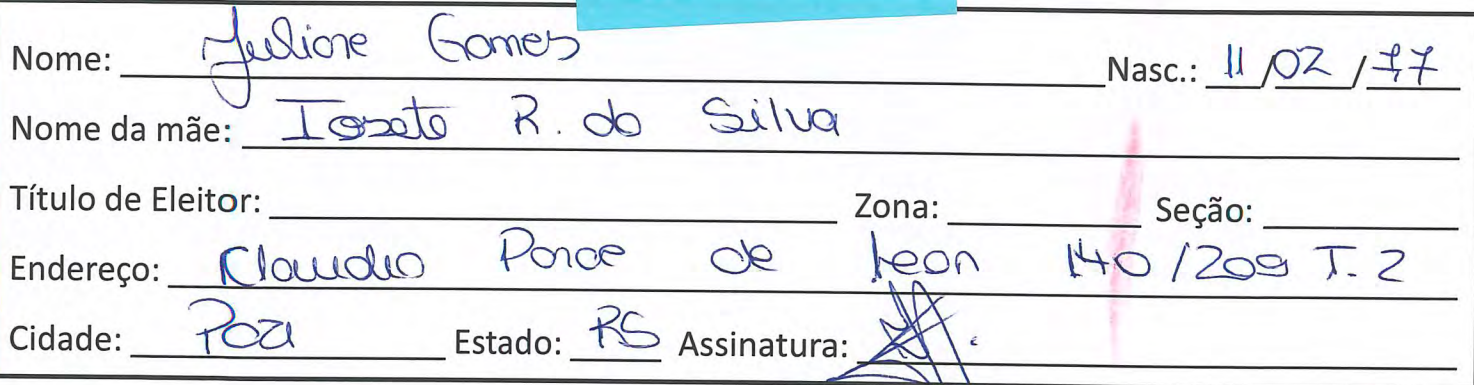 Nome: Juliane Gomes Nasc.: 11/02/77
Nome da mãe: R. da Silva
Título de Eleitor: Zona: Seção:
Endereço: Claudio Ponce de Leon 140/209 T. 2
Cidade: POA Estado: RS Assinatura: